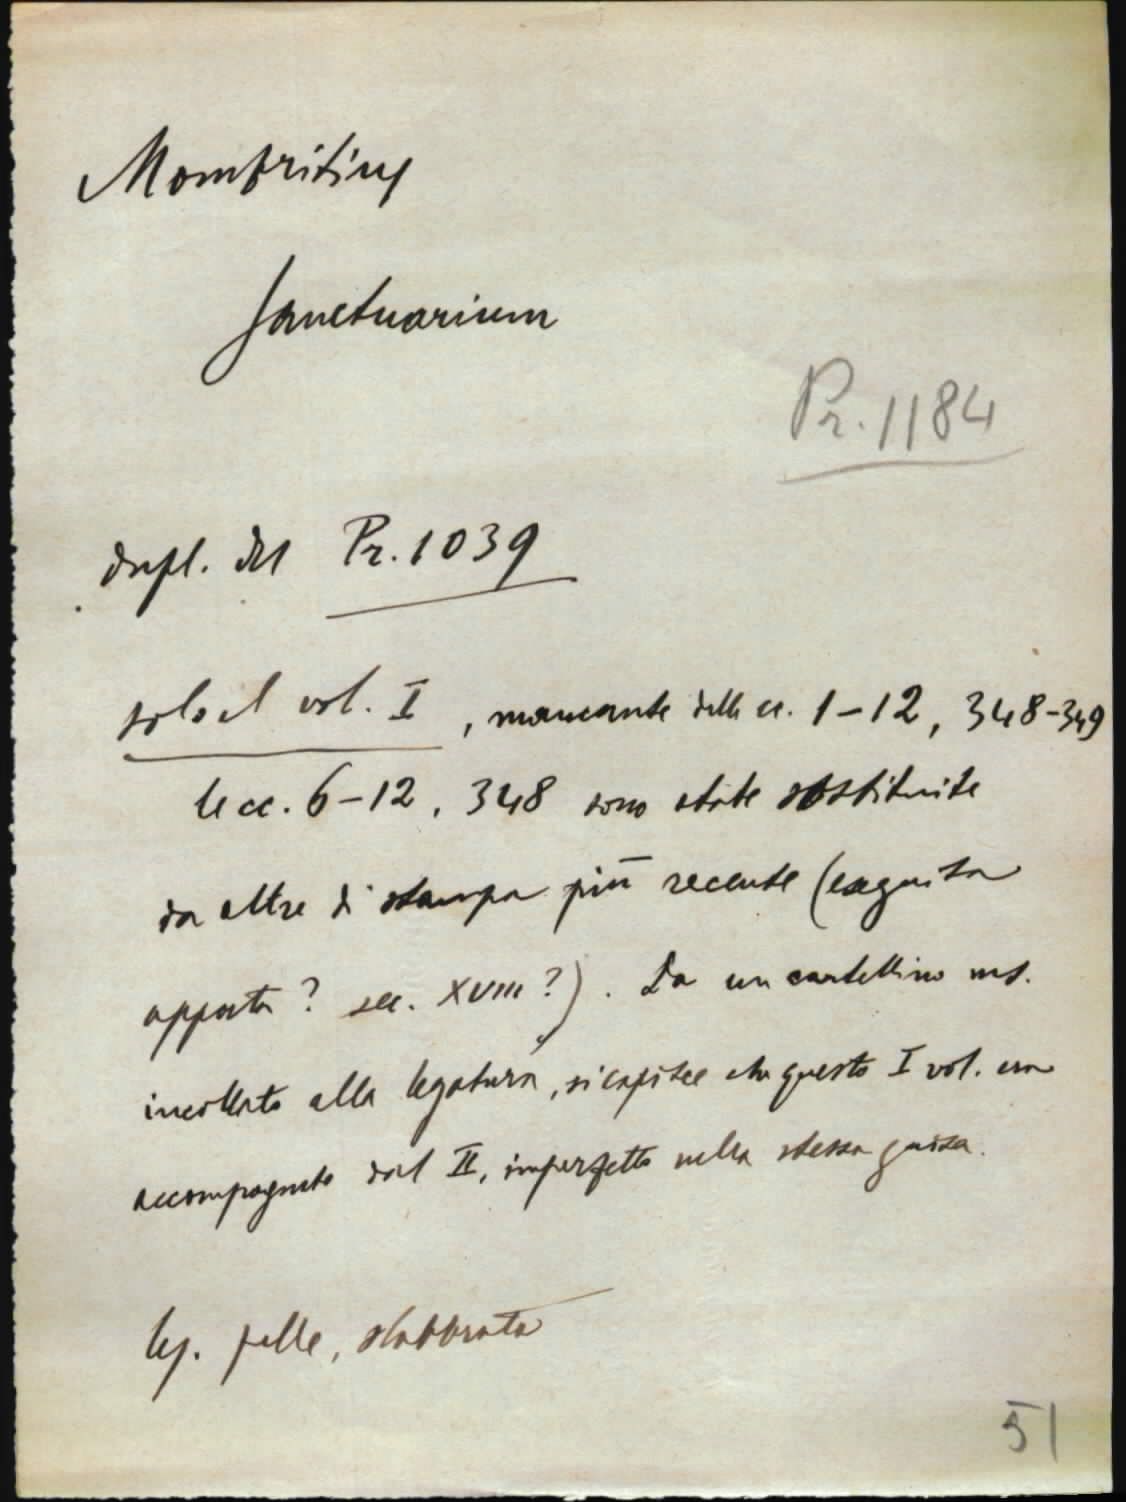 Mombritius
Sanctuarium
Pr. 1184
dupl. del Pr. 1039
solo il vol. I, mancante delle cc. 1-12, 348-349
le cc. 6-12, 348 sono state sostituite
da altre di stampa più recente (eseguita
apposta? sec. XVIII?). Da un cartellino ms.
incollato alla legatura, si capisce che questo I vol. era
accompagnato dal II, imperfetto nella stessa guisa.
leg. pelle, slabbrata
51